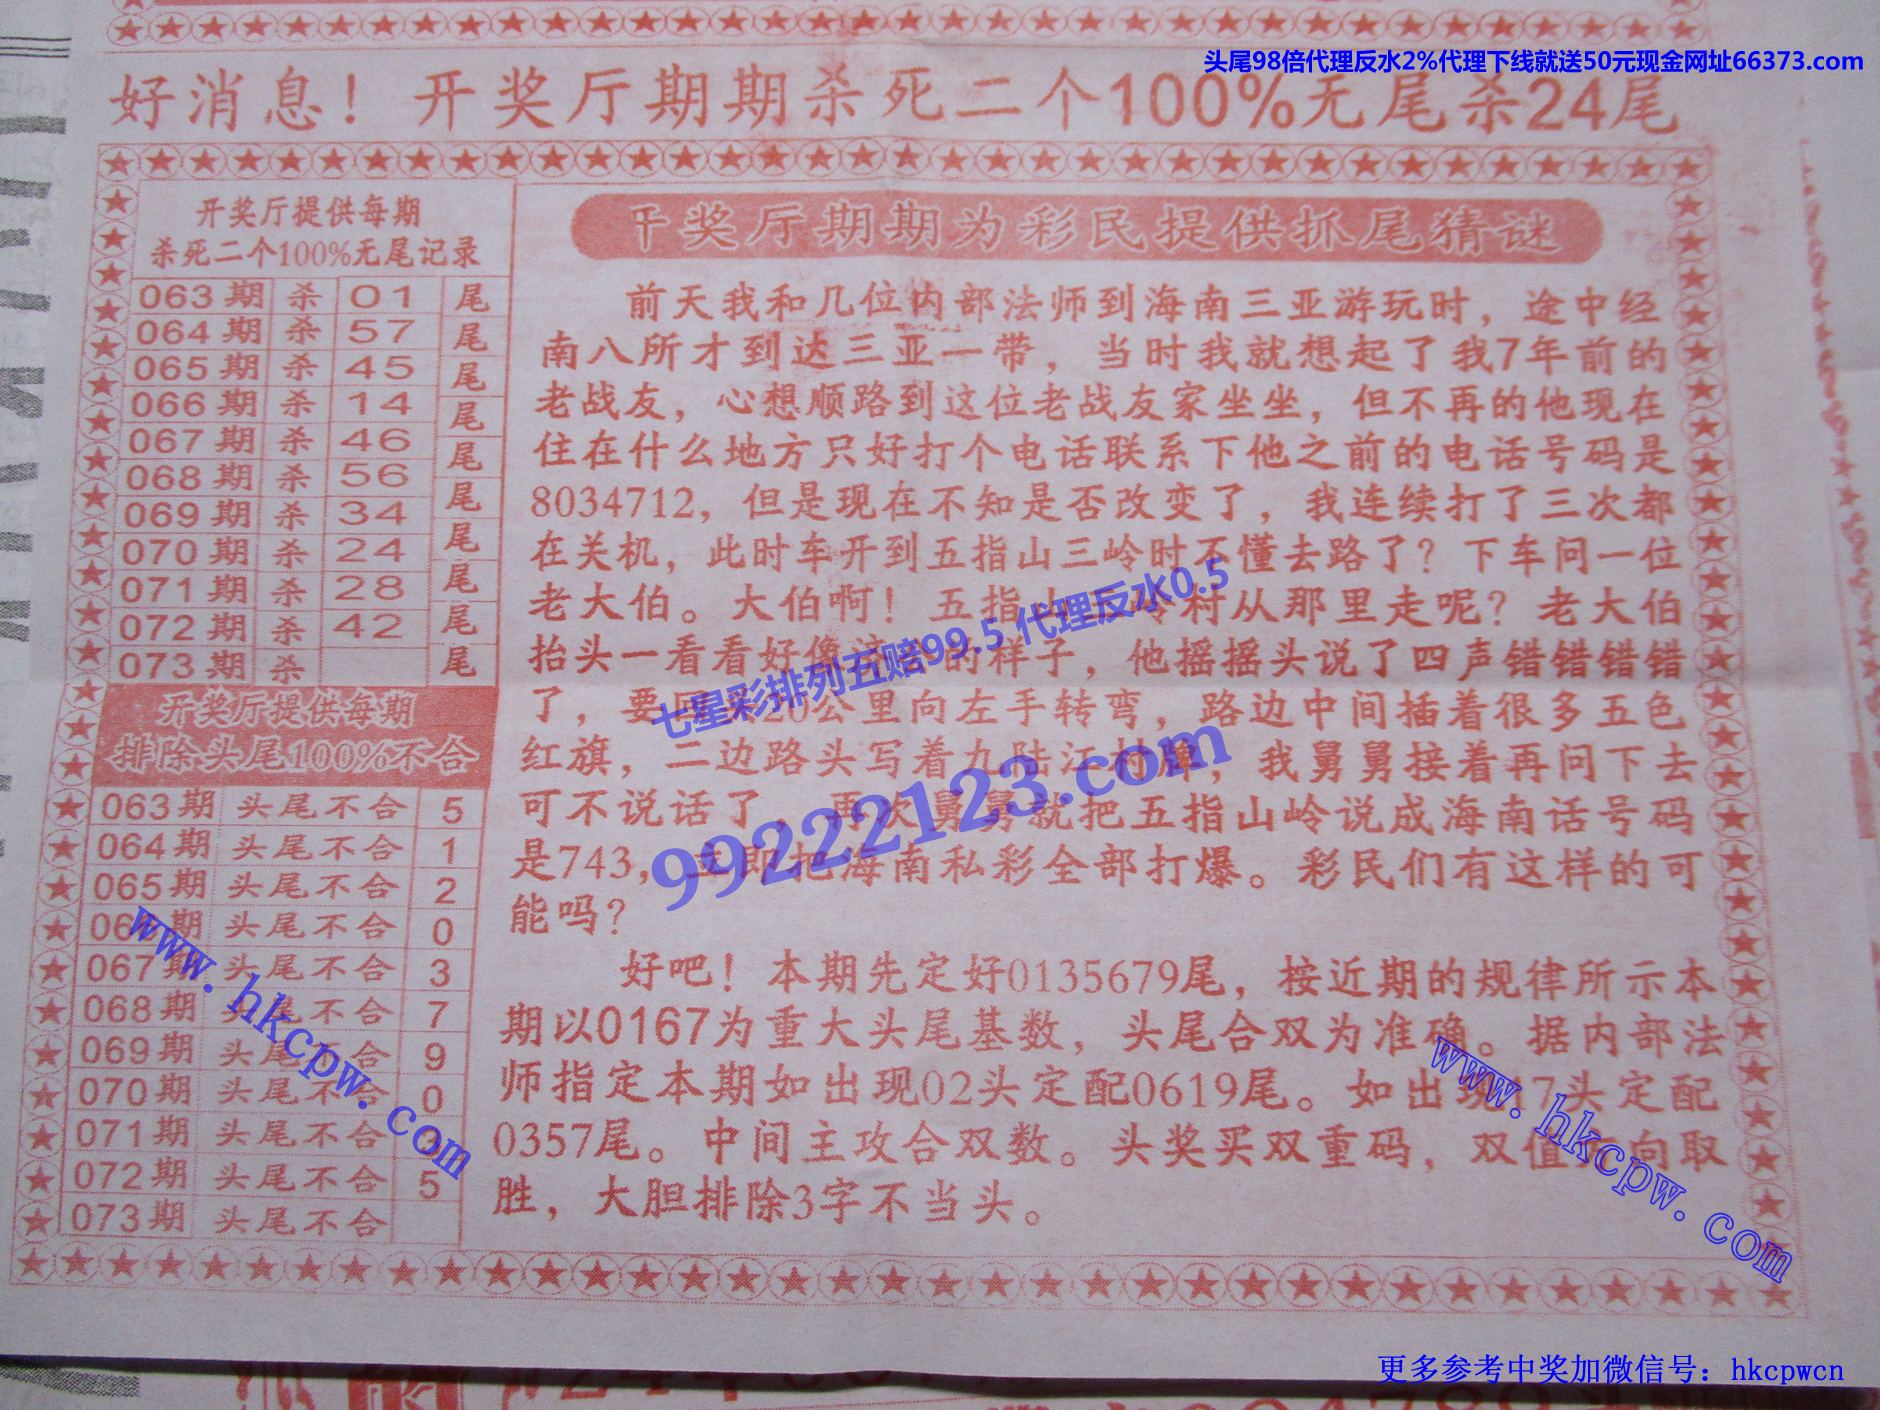 头尾98倍代理反水2%代理下线就送50元现金网址66373.com
好消息！开奖厅期期杀死二个100%无尾杀24尾
开奖厅提供每期
杀死二个100%无尾记录
063期 杀 01 尾
064期 杀 57 尾
065期 杀 45 尾
066期 杀 14 尾
067期 杀 46 尾
068期 杀 56 尾
069期 杀 34 尾
070期 杀 24 尾
071期 杀 28 尾
072期 杀 42 尾
073期 杀 尾
开奖厅提供每期
排除头尾100%不合
063期 头尾不合 5
064期 头尾不合 1
065期 头尾不合 2
066期 头尾不合 0
067期 头尾不合 3
068期 头尾不合 7
069期 头尾不合 9
070期 头尾不合 0
071期 头尾不合
072期 头尾不合 5
073期 头尾不合
开奖厅期期为彩民提供抓尾猜谜
前天我和几位内部法师到海南三亚游玩时，途中经
南八所才到达三亚一带，当时我就想起了我7年前的
老战友，心想顺路到这位老战友家坐坐，但不再的他现在
住在什么地方只好打个电话联系下他之前的电话号码是
8034712，但是现在不知是否改变了，我连续打了三次都
在关机，此时车开到五指山三岭时不懂去路了？下车问一位
老大伯。大伯啊！五指山三岭村从那里走呢？老大伯
抬头一看看好像 的样子，他摇摇头说了四声错错错错
了，要 20公里向左手转弯，路边中间插着很多五色
红旗，二边路头写着九陆江村牌，我舅舅接着再问下去
可不说话了，再次舅舅就把五指山岭说成海南话号码
是743，立即把海南私彩全部打爆。彩民们有这样的可
能吗？
好吧！本期先定好0135679尾，按近期的规律所示本
期以0167为重大头尾基数，头尾合双为准确。据内部法
师指定本期如出现02头定配0619尾。如出现 17头定配
0357尾。中间主攻合双数。头奖买双重码，双值 向取
胜，大胆排除3字不当头。
七星彩排列五赔99.5 代理反水0.5
99222123.com
www.hkcpw.com
www.hkcpw.com
更多参考中奖加微信号：hkcpwcn